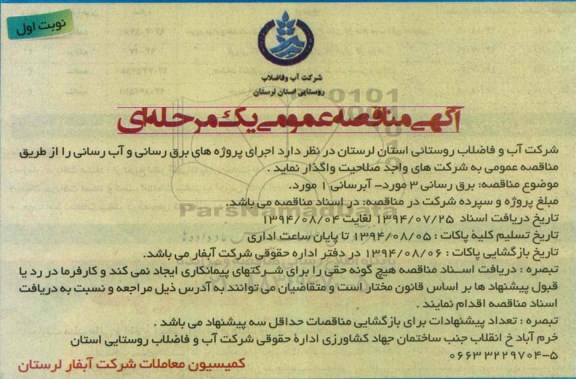 نوبت اول
شرکت آب و فاضلاب
روستایی استان لرستان
آگهی مناقصه عمومی یک مرحله‌ای
شرکت آب و فاضلاب روستائی استان لرستان در نظر دارد اجرای پروژه های برق رسانی و آب رسانی را از طریق
مناقصه عمومی به شرکت های واجد صلاحیت واگذار نماید .
موضوع مناقصه: برق رسانی ۳ مورد- آبرسانی ۱ مورد.
مبلغ پروژه و سپرده شرکت در مناقصه: در اسناد مناقصه می باشد.
تاریخ دریافت اسناد ۱۳۹۴/۰۷/۲۵ لغایت ۱۳۹۴/۰۸/۰۴
تاریخ تسلیم کلیهٔ پاکات : ۱۳۹۴/۰۸/۰۵ تا پایان ساعت اداری
تاریخ بازگشایی پاکات : ۱۳۹۴/۰۸/۰۶ در دفتر اداره حقوقی شرکت آبفار می باشد.
تبصره : دریافت اسـناد مناقصه هیچ گونه حقی را برای شـرکتهای پیمانکاری ایجاد نمی کند و کارفرما در رد یا
قبول پیشنهاد ها بر اساس قانون مختار است و متقاضیان می توانند به آدرس ذیل مراجعه و نسبت به دریافت
اسناد مناقصه اقدام نمایند .
تبصره : تعداد پیشنهادات برای بازگشایی مناقصات حداقل سه پیشنهاد می باشد .
خرم آباد خ انقلاب جنب ساختمان جهاد کشاورزی ادارهٔ حقوقی شرکت آب و فاضلاب روستایی استان
۰۶۶۳۳۲۲۹۷۰۴-۵
کمیسیون معاملات شرکت آبفار لرستان